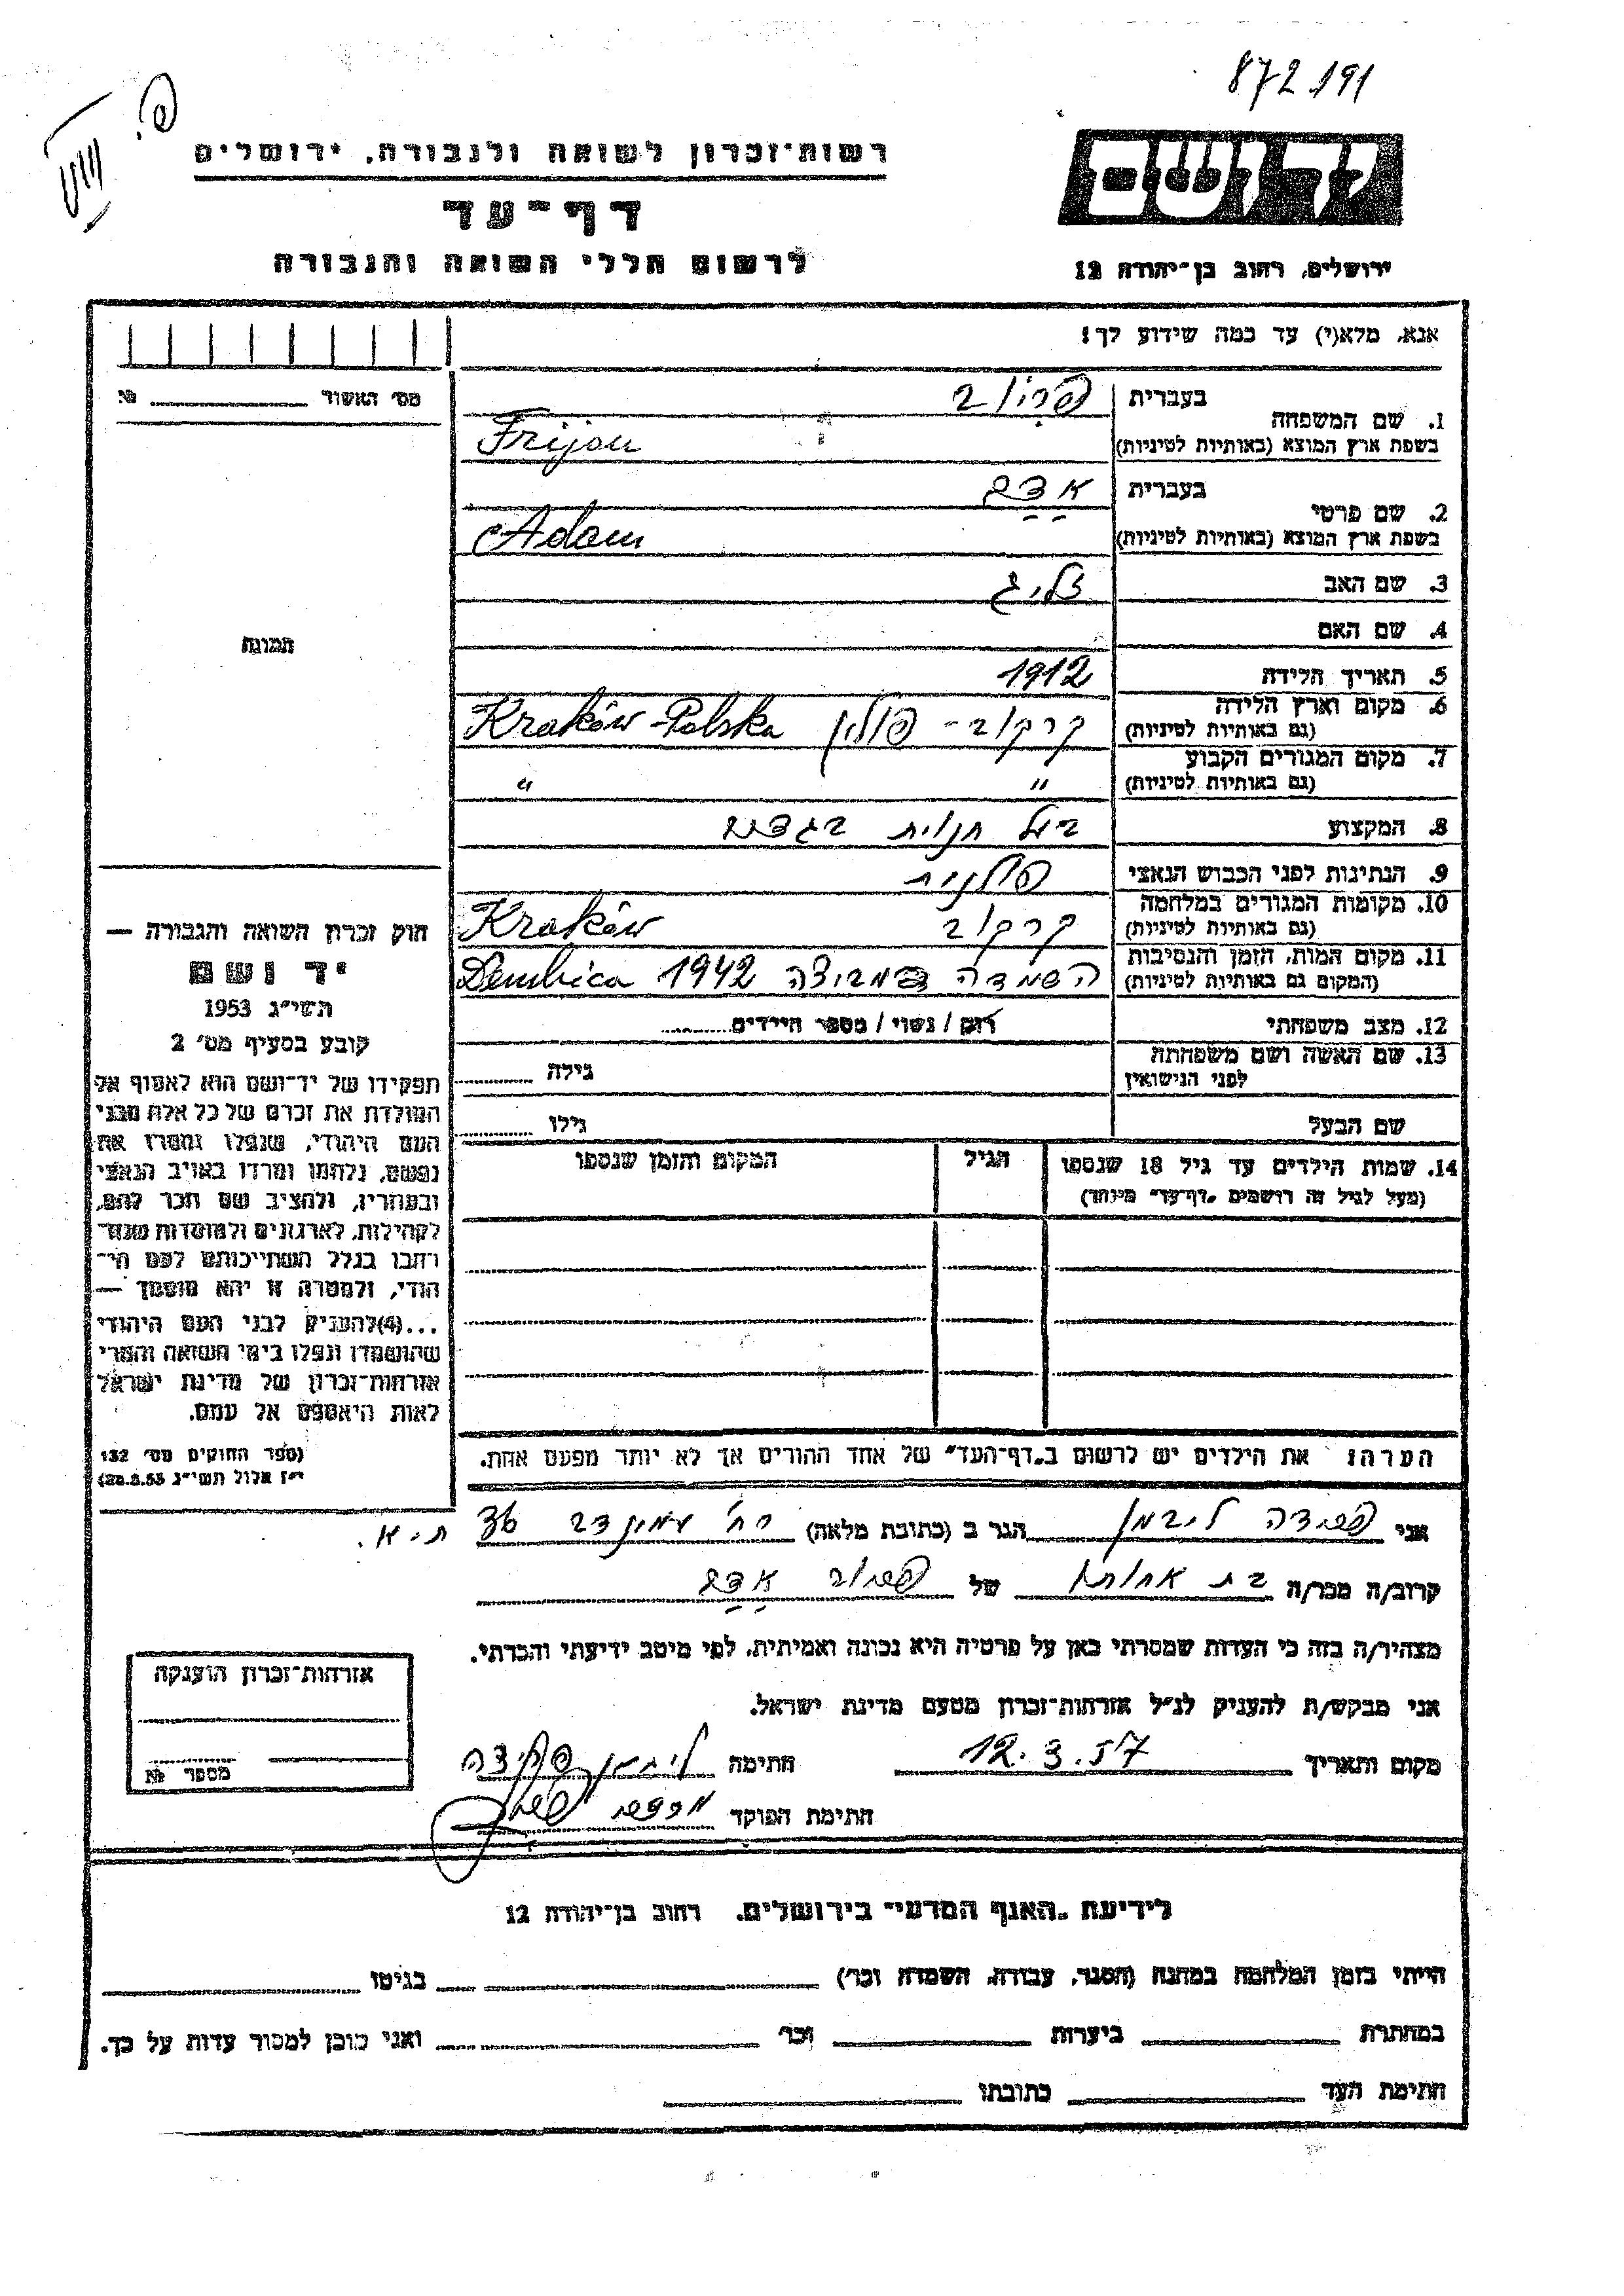 872191
רשות־זכרון לשואה ולגבורה, ירושלים
יד ושם
דף־עד
לרשום חללי השואה והגבורה
ירושלים, רחוב בן־יהודה 12
אנא, מלא(י) עד כמה שידוע לך!
מס׳ האשור № ________
1. שם המשפחה
בעברית
בשפת ארץ המוצא (באותיות לטיניות)
2. שם פרטי
בעברית אדם
בשפת ארץ המוצא (באותיות לטיניות) Adam
3. שם האב זליג
4. שם האם
5. תאריך הלידה 1912
6. מקום וארץ הלידה
(גם באותיות לטיניות) קרקוב - פולין Kraków - Polska
7. מקום המגורים הקבוע
(גם באותיות לטיניות) " "
8. המקצוע בעל חנות בגדים
9. הנתינות לפני הכבוש הנאצי פולנית
10. מקומות המגורים במלחמה
(גם באותיות לטיניות) קרקוב Kraków
11. מקום המות, הזמן והנסיבות
(המקום גם באותיות לטיניות) השמדה 1942 Dembica
12. מצב משפחתי רוק / נשוי / מספר הילדים........
13. שם האשה ושם משפחתה
לפני הנישואין גילה ........
שם הבעל גילו ........
14. שמות הילדים עד גיל 18 שנספו
(מעל לגיל זה רושמים "דף־עד" מיוחד)
הגיל
המקום והזמן שנספו
תמונה
חוק זכרון השואה והגבורה —
יד ושם
תשי״ג 1953
קובע בסעיף מס׳ 2
תפקידו של יד־ושם הוא לאסוף אל
המולדת את זכרם של כל אלה מבני
העם היהודי, שנפלו ומסרו את
נפשם, נלחמו ומרדו באויב הנאצי
ובעוזריו, ולהציב שם וזכר להם,
לקהילות, לארגונים ולמוסדות שנח־
רבו בגלל השתייכותם לעם הי־
הודי, ולמטרה זו יהא מוסמך —
...(4)להעניק לבני העם היהודי
שהושמדו ונפלו בימי השואה והמרי
אזרחות־זכרון של מדינת ישראל
לאות היאספם אל עמם.
(ספר החוקים מס׳ 132
י״ז אלול תשי״ג 28.8.53)
הערה: את הילדים יש לרשום ב"דף־העד" של אחד ההורים אך לא יותר מפעם אחת.
אני ליבמן הגר ב (כתובת מלאה) רח׳ ת-א.
קרוב/ה מכר/ה בת אחותו של אדם
מצהיר/ה בזה כי העדות שמסרתי כאן על פרטיה היא נכונה ואמיתית, לפי מיטב ידיעתי והכרתי.
אני מבקש/ת להעניק לנ״ל אזרחות־זכרון מטעם מדינת ישראל.
מקום ותאריך 12.3.57 חתימה
חתימת הפוקד
אזרחות־זכרון הוענקה
מספר №
לידיעת "האגף המדעי" בירושלים, רחוב בן־יהודה 12
הייתי בזמן המלחמה במחנה (הסגר, עבודה, השמדה וכו׳) ________ בגיטו ________
במחתרת ________ ביערות ________ וכו׳ ________ ואני מוכן למסור עדות על כך.
חתימת העד ________ כתובתו ________